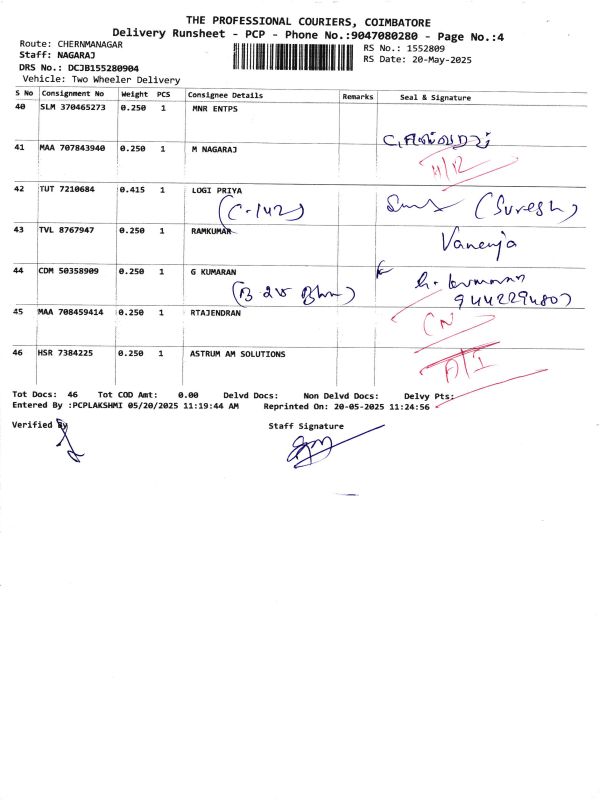 THE PROFESSIONAL COURIERS, COIMBATORE
Delivery Runsheet - PCP - Phone No.:9047080280 - Page No.:4
Route: CHERNMANAGAR
RS No.: 1552809
Staff: NAGARAJ
RS Date: 20-May-2025
DRS No.: DCJB155280904
Vehicle: Two Wheeler Delivery
S No Consignment No Weight PCS Consignee Details Remarks Seal & Signature
40 SLM 370465273 0.250 1 MNR ENTPS
41 MAA 707843940 0.250 1 M NAGARAJ
42 TUT 7210684 0.415 1 LOGI PRIYA
(C-142) (Suresh)
43 TVL 8767947 0.250 1 RAMKUMAR
Vanenja
44 CDM 50358909 0.250 1 G KUMARAN
45 MAA 708459414 0.250 1 RTAJENDRAN
(N)
46 HSR 7384225 0.250 1 ASTRUM AM SOLUTIONS
Tot Docs: 46 Tot COD Amt: 0.00 Delvd Docs: Non Delvd Docs: Delvy Pts:
Entered By :PCPLAKSHMI 05/20/2025 11:19:44 AM Reprinted On: 20-05-2025 11:24:56
Verified By Staff Signature